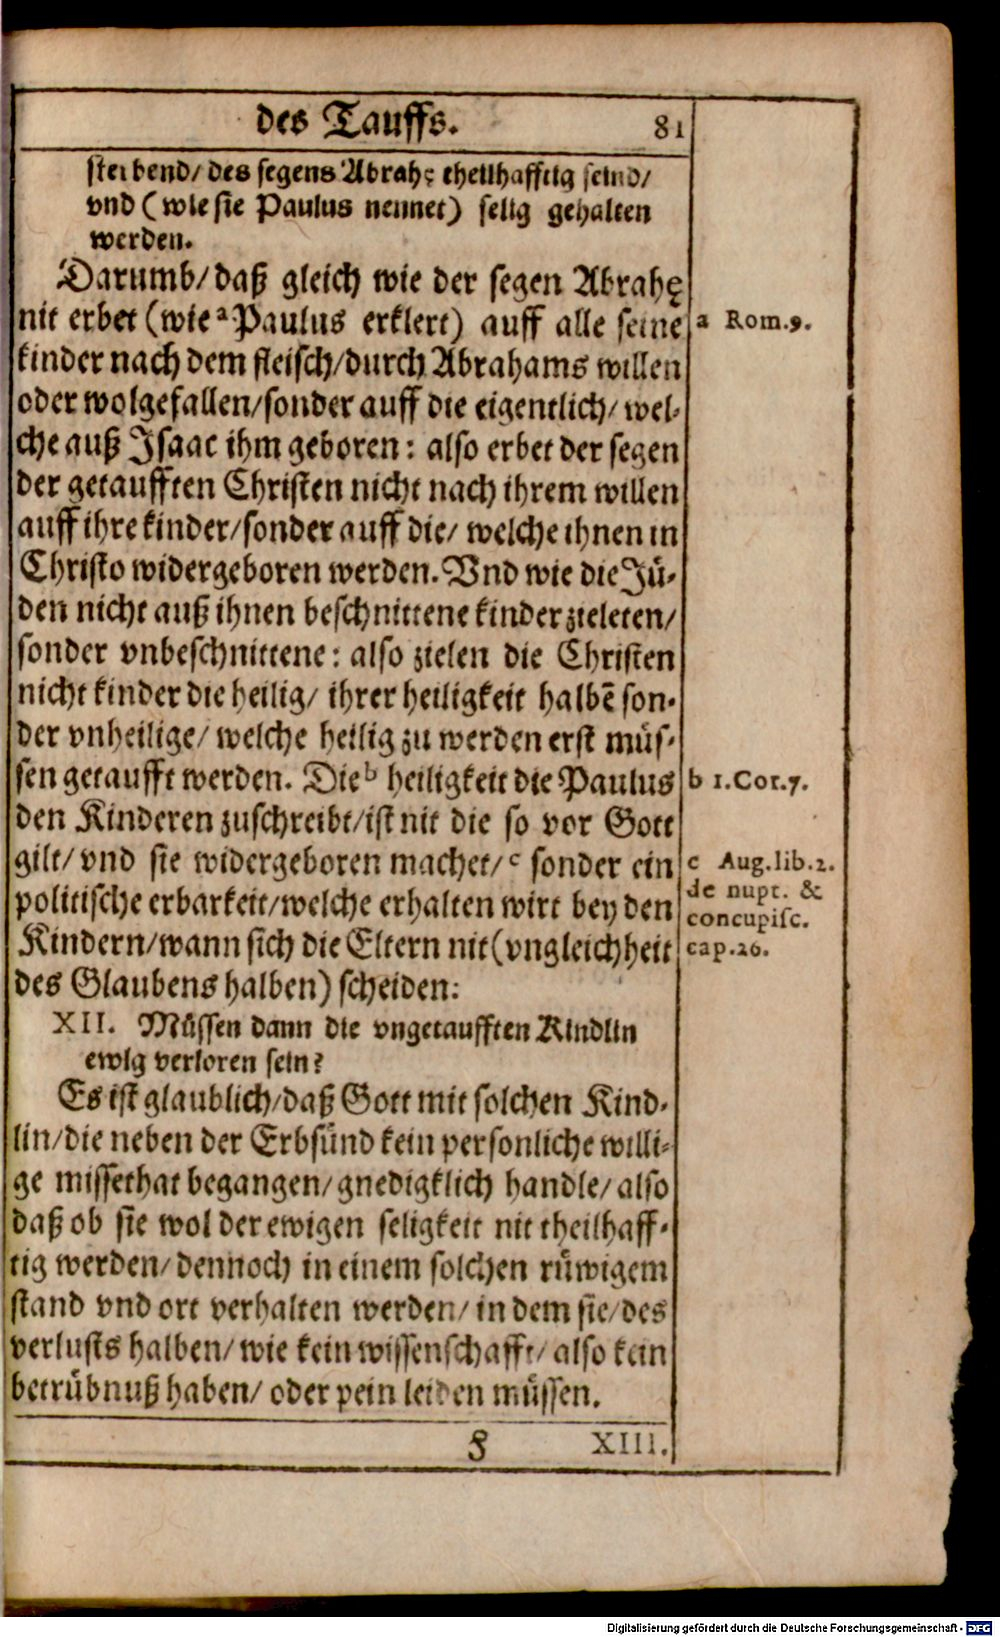 des Tauffs. 81
sterbend/ des segens Abrahę theilhafftig seind/
vnd (wie sie Paulus nennet) selig gehalten
werden.
Darumb/ daß gleich wie der segen Abrahę
nit erbet (wie ᵃ Paulus erklert) auff alle seine
a Rom.9.
kinder nach dem fleisch/ durch Abrahams willen
oder wolgefallen/ sonder auff die eigentlich/ wel-
che auß Isaac ihm geboren: also erbet der segen
der getaufften Christen nicht nach ihrem willen
auff ihre kinder/ sonder auff die/ welche ihnen in
Christo widergeboren werden. Vnd wie die Jü-
den nicht auß ihnen beschnittene kinder zieleten/
sonder vnbeschnittene: also zielen die Christen
nicht kinder die heilig/ ihrer heiligkeit halbẽ son-
der vnheilige/ welche heilig zu werden erst müs-
sen getaufft werden. Die ᵇ heiligkeit die Paulus
b 1.Cor.7.
den Kinderen zuschreibt/ ist nit die so vor Gott
gilt/ vnd sie widergeboren machet/ ᶜ sonder ein
c Aug.lib.2.
politische erbarkeit/ welche erhalten wirt bey den
de nupt. &
concupisc.
Kindern/ wann sich die Eltern nit (vngleichheit
cap.26.
des Glaubens halben) scheiden:
XII. Müssen dann die vngetaufften Kindlin
ewig verloren sein?
Es ist glaublich/ daß Gott mit solchen Kind-
lin/ die neben der Erbsünd kein personliche willi-
ge missethat begangen/ gnedigklich handle/ also
daß ob sie wol der ewigen seligkeit nit theilhaff-
tig werden/ dennoch in einem solchen rüwigem
stand vnd ort verhalten werden/ in dem sie/ des
verlusts halben/ wie kein wissenschafft/ also kein
betrübnuß haben/ oder pein leiden müssen.
F XIII.
Digitalisierung gefördert durch die Deutsche Forschungsgemeinschaft - DFG